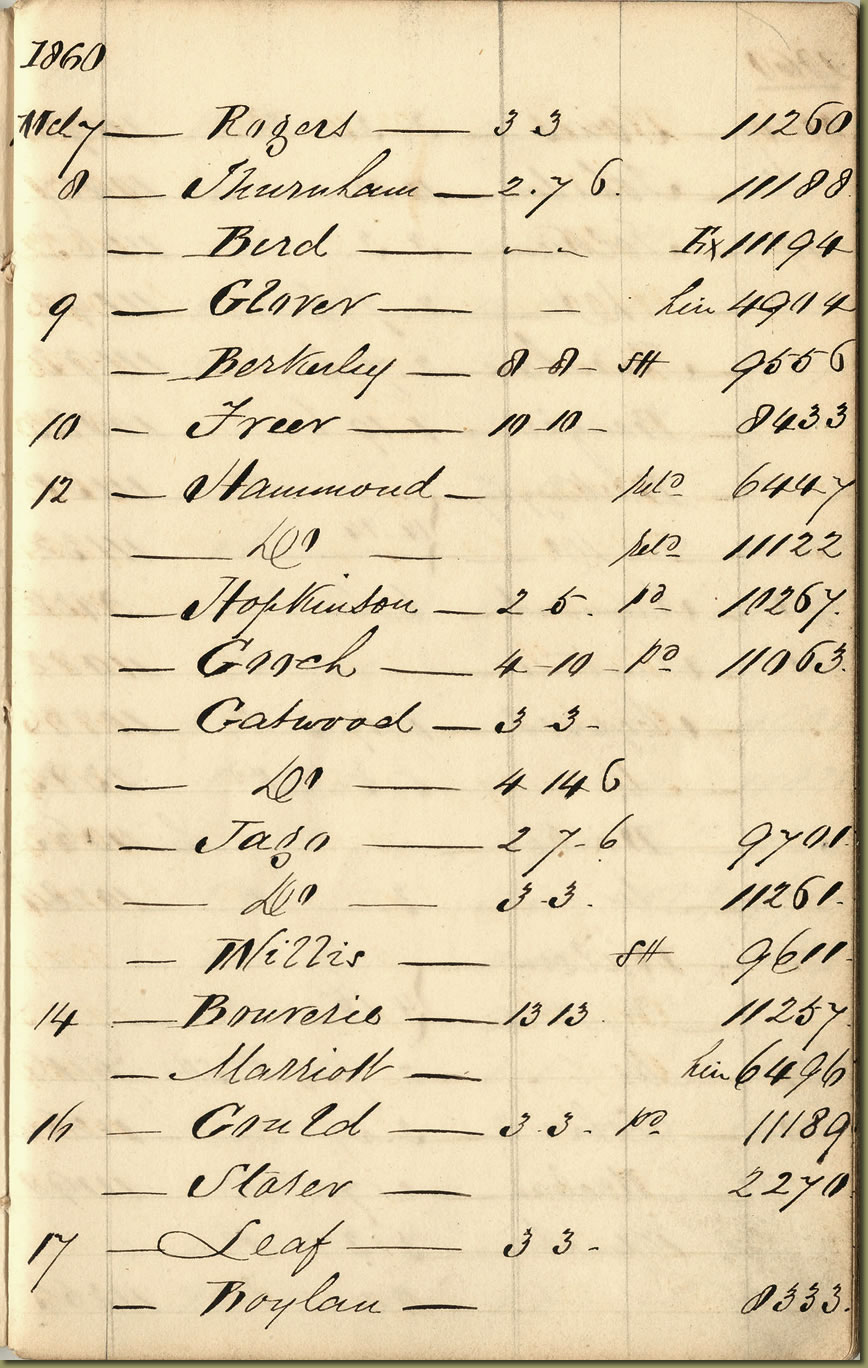 1860
Mch 7 — Rogers — 3 3 11260
8 — Thurnham — 2.7 6. 11188
— Bird — Ex 11194
9 — Glover — — 4904
— Berkeley — 8-8- SH 9556
10 — Freer — 10-10- 8433
12 — Hammond — 6447
— Do — 11122
— Hopkinson — 2 5. pd 10267.
— Gooch — 4-10- pd 11063.
— Gatwood — 3 3-
— Do — 4 14 6
— Jago — 2 7-6 9701.
— Do — 3-3. 11261.
— Willis — SH 9611
14 — Bouverie — 13 13 11257.
— Marriott — 6496
16 — Gould — 3.3- pd 11189
— Storer — 2270
17 — Leaf — 3 3-
— Boylan — 8333.